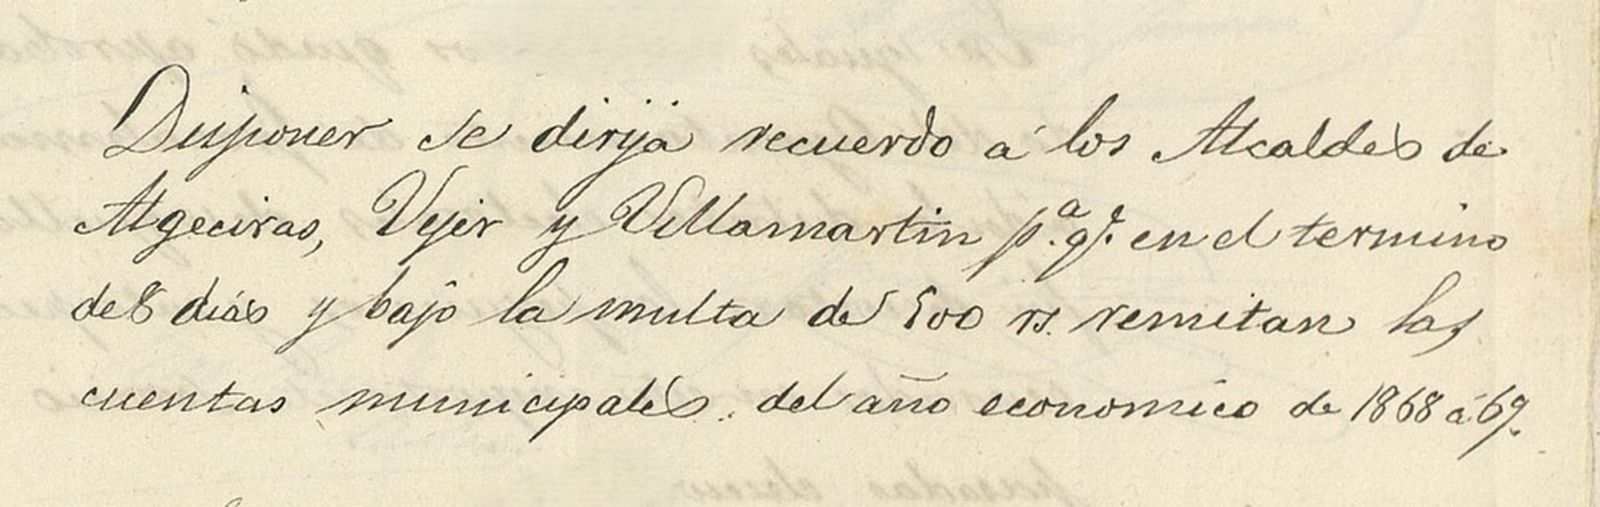 Disponer se dirija recuerdo á los Alcaldes de
Algeciras, Vejer y Villamartin p.ª q.e en el termino
de 8 dias y bajo la multa de 500 rs. remitan las
cuentas municipales. del año economico de 1868 á 69.